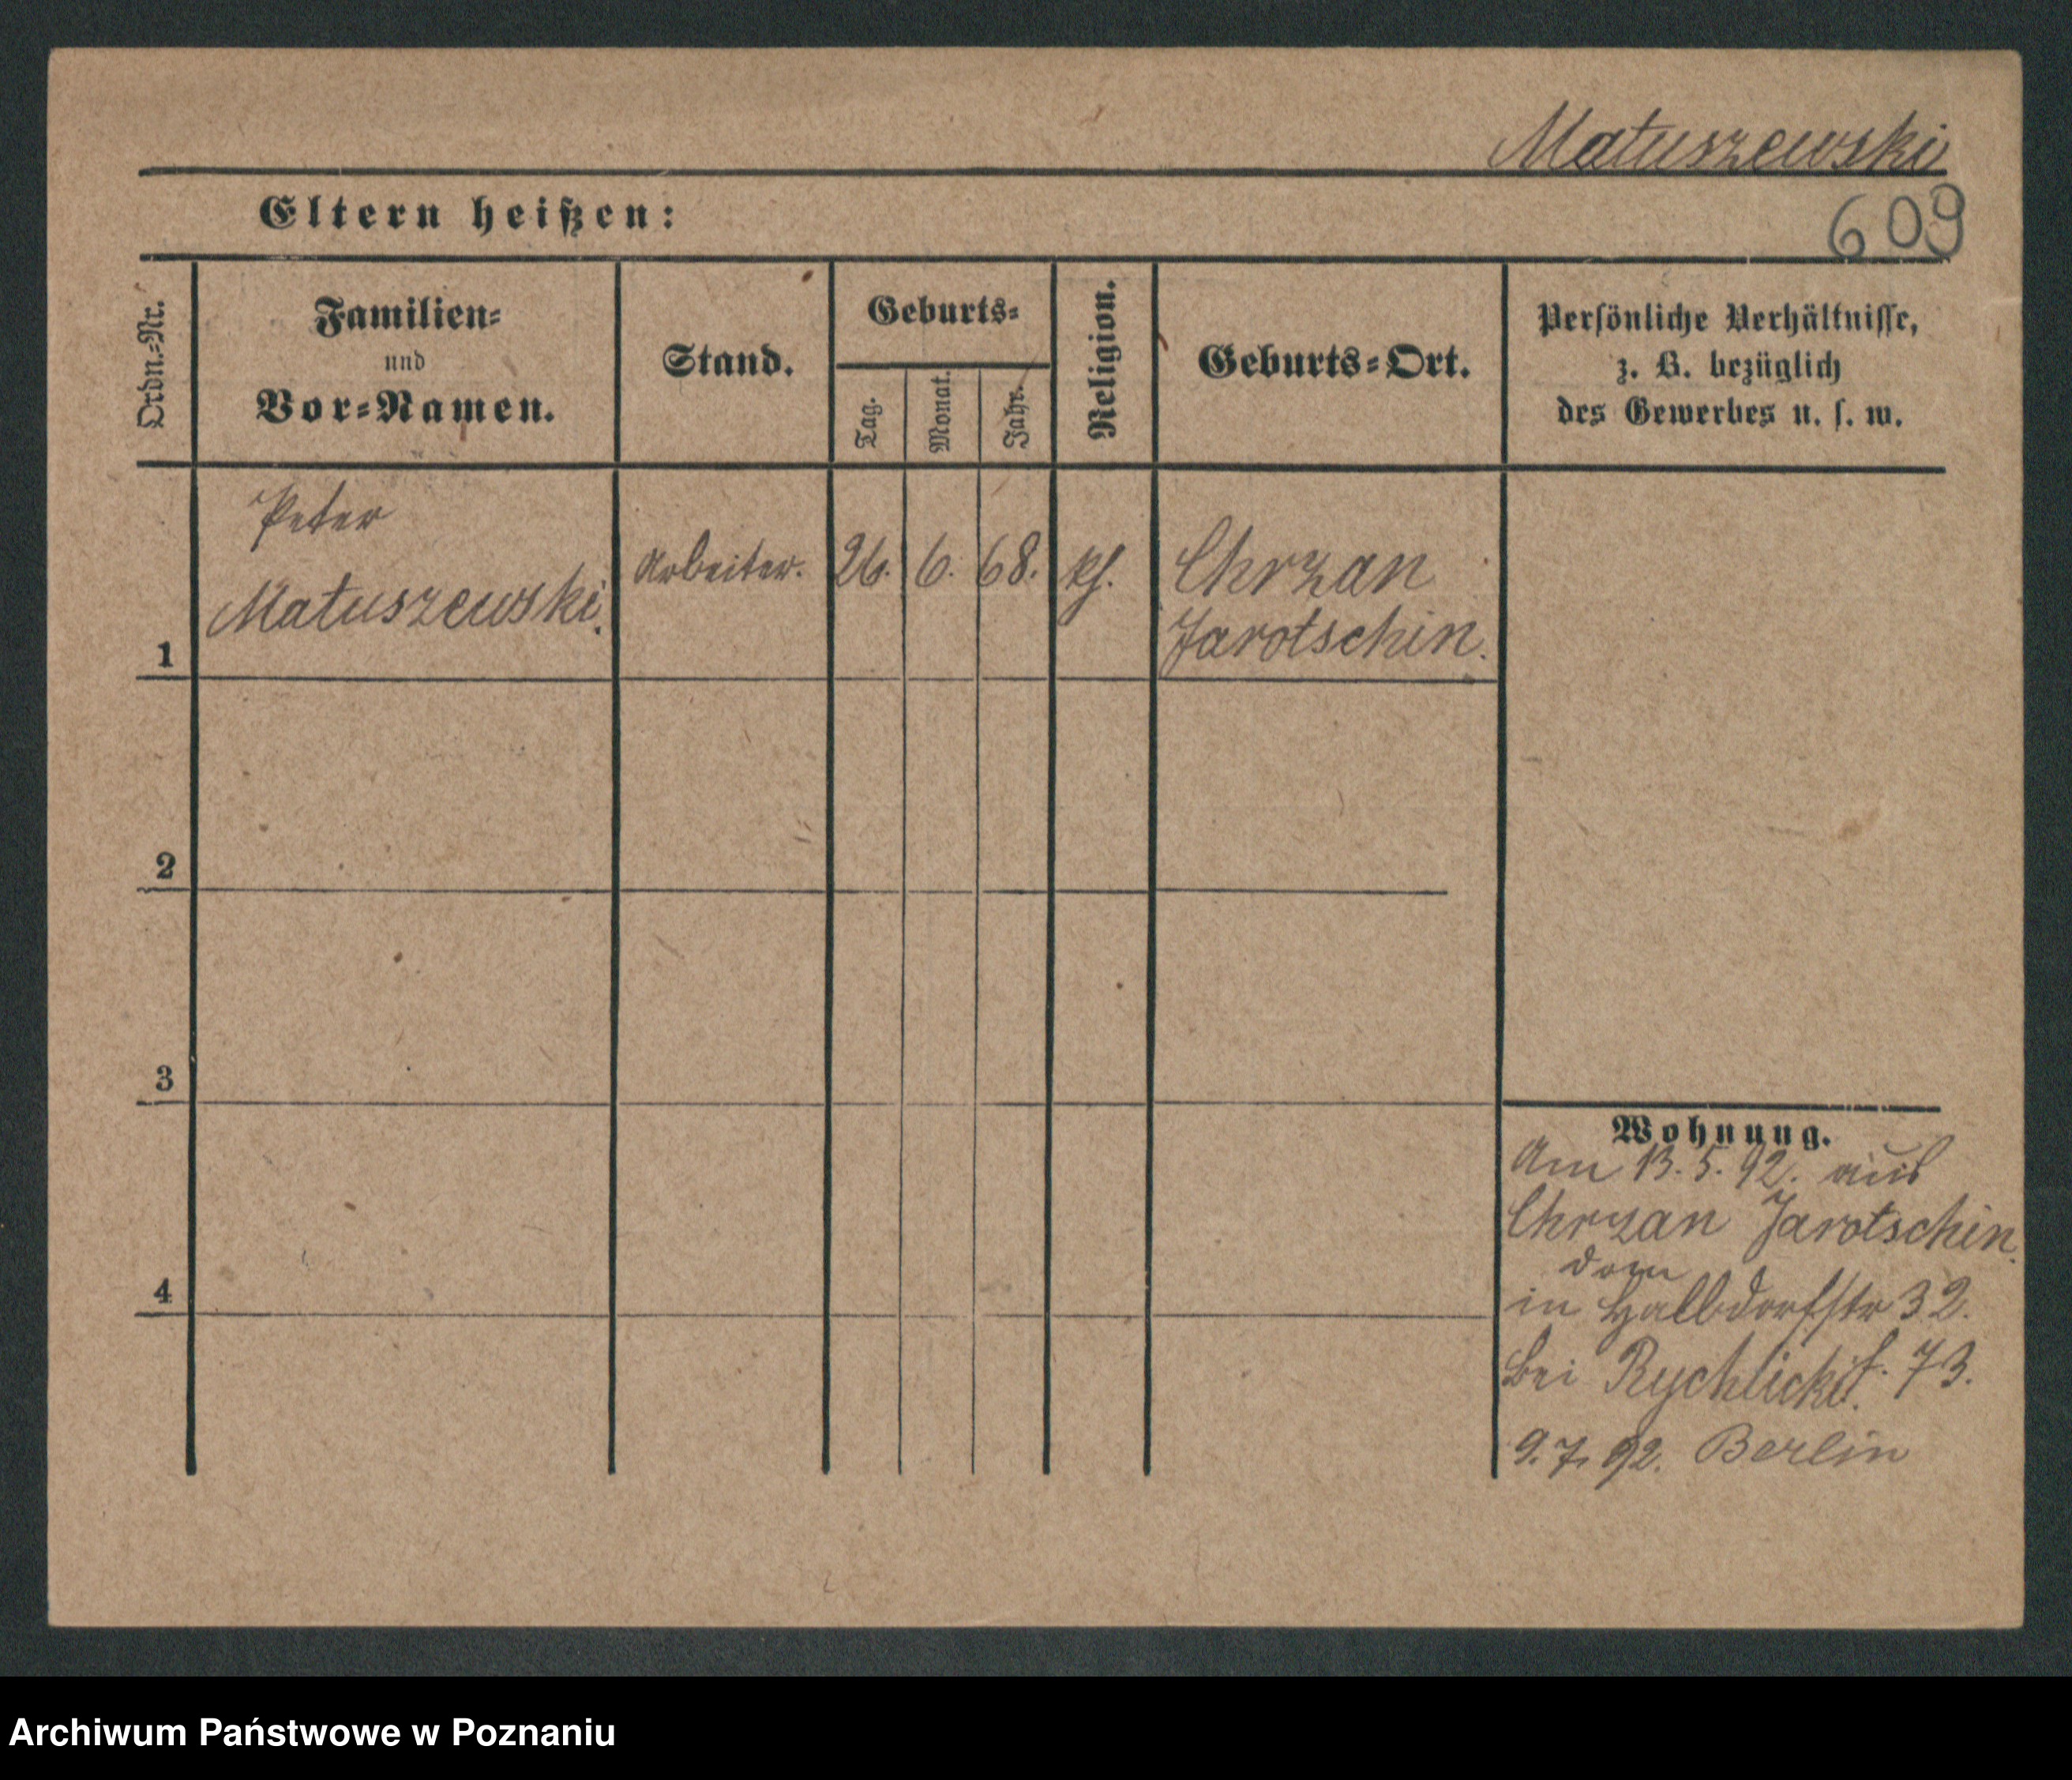 Matuszewski
Eltern heißen:
609
Ordn.=Nr.
Familien=
und
Vor=Namen.
Stand.
Geburts=
Tag.
Monat.
Jahr.
Religion.
Geburts=Ort.
Persönliche Verhältnisse,
z. B. bezüglich
des Gewerbes u. s. w.
Peter
Matuszewski.
Arbeiter.
26.
6.
68.
Chrzan
Jarotschin.
1
2
3
4
Wohnung.
Am 13. 5. 92. aus
Chrzan Jarotschin.
dom
in Halbdorfstr 32.
bei Rychlicki f. 73.
9. 7. 92. Berlin
Archiwum Państwowe w Poznaniu